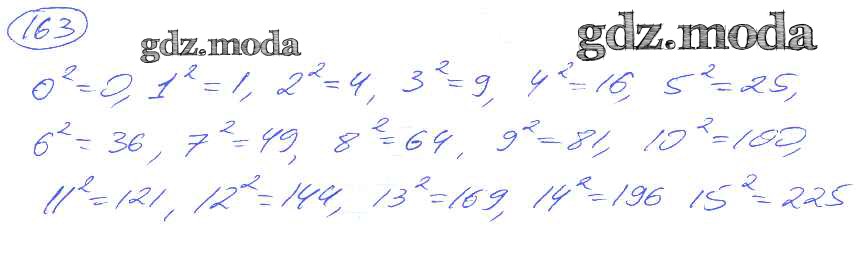 163
gdz.moda gdz.moda
0² = 0, 1² = 1, 2² = 4, 3² = 9, 4² = 16, 5² = 25,
6² = 36, 7² = 49, 8² = 64, 9² = 81, 10² = 100,
11² = 121, 12² = 144, 13² = 169, 14² = 196 15² = 225